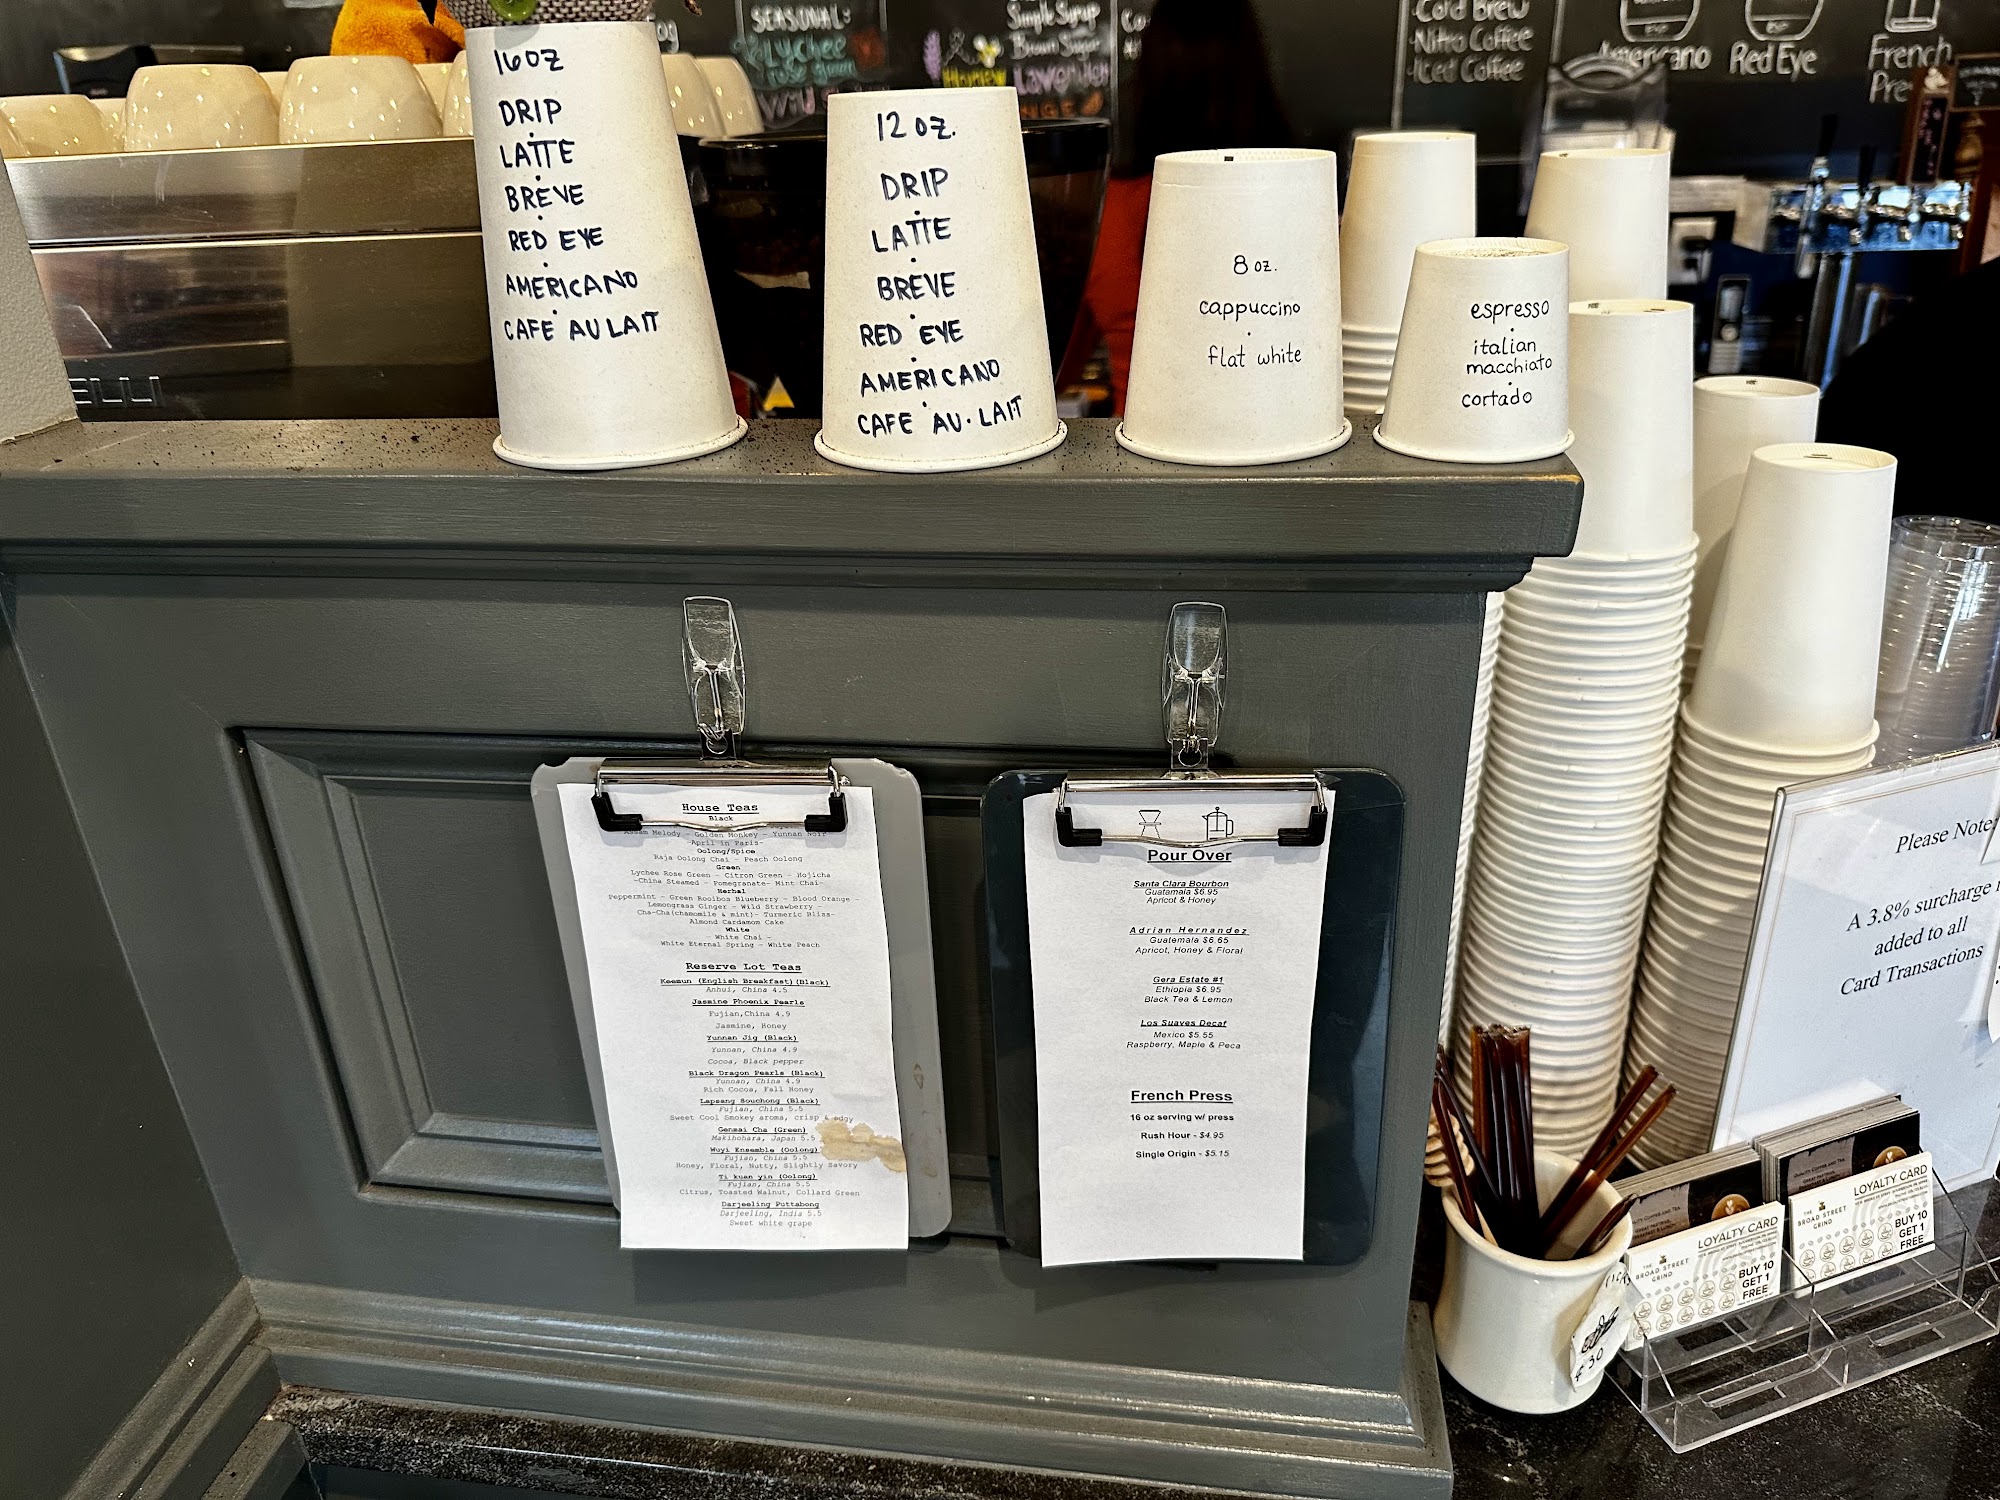 SEASONAL
Lychee
Simple Syrup
Brown Sugar
Lavender
Cold Brew
Nitro Coffee
Iced Coffee
Americano
Red Eye
French
16 OZ
DRIP
LATTE
BREVE
RED EYE
AMERICANO
CAFE AU LAIT
12 OZ.
DRIP
LATTE
BREVE
RED EYE
AMERICANO
CAFE AU·LAIT
8 oz.
cappuccino
flat white
espresso
italian
macchiato
cortado
ELLI
House Teas
Black
Assam Melody - Golden Monkey - Yunnan Noir
-April in Paris-
Oolong/Spice
Raja Oolong Chai - Peach Oolong
Green
Lychee Rose Green - Citron Green - Hojicha
-China Steamed - Pomegranate- Mint Chai-
Herbal
Peppermint - Green Rooibos Blueberry - Blood Orange -
Lemongrass Ginger - Wild Strawberry -
Cha-Cha(chamomile & mint)- Turmeric Bliss-
Almond Cardamon Cake
White
- White Chai -
White Eternal Spring - White Peach
Reserve Lot Teas
Keemun (English Breakfast)(Black)
Anhui, China 4.5
Jasmine Phoenix Pearls
Fujian,China 4.9
Jasmine, Honey
Yunnan Jig (Black)
Yunnan, China 4.9
Cocoa, Black pepper
Black Dragon Pearls (Black)
Yunnan, China 4.9
Rich Cocoa, Fall Honey
Lapsang Souchong (Black)
Fujian, China 5.5
Sweet Cool Smokey aroma, crisp & edgy
Genmai Cha (Green)
Makihohara, Japan 5.5
Wuyi Ensemble (Oolong)
Fujian, China 5.5
Honey, Floral, Nutty, Slightly Savory
Ti kuan yin (Oolong)
Fujian, China 5.5
Citrus, Toasted Walnut, Collard Green
Darjeeling Puttabong
Darjeeling, India 5.5
Sweet white grape
Pour Over
Santa Clara Bourbon
Guatamala $6.95
Apricot & Honey
Adrian Hernandez
Guatamala $6.65
Apricot, Honey & Floral
Gera Estate #1
Ethiopia $6.95
Black Tea & Lemon
Los Suaves Decaf
Mexico $5.55
Raspberry, Maple & Peca
French Press
16 oz serving w/ press
Rush Hour - $4.95
Single Origin - $5.15
Please Note:
A 3.8% surcharge
added to all
Card Transactions
LOYALTY CARD
THE
BROAD STREET
GRIND
BUY 10
GET 1
FREE
LOYALTY CARD
THE
BROAD STREET
GRIND
BUY 10
GET 1
FREE